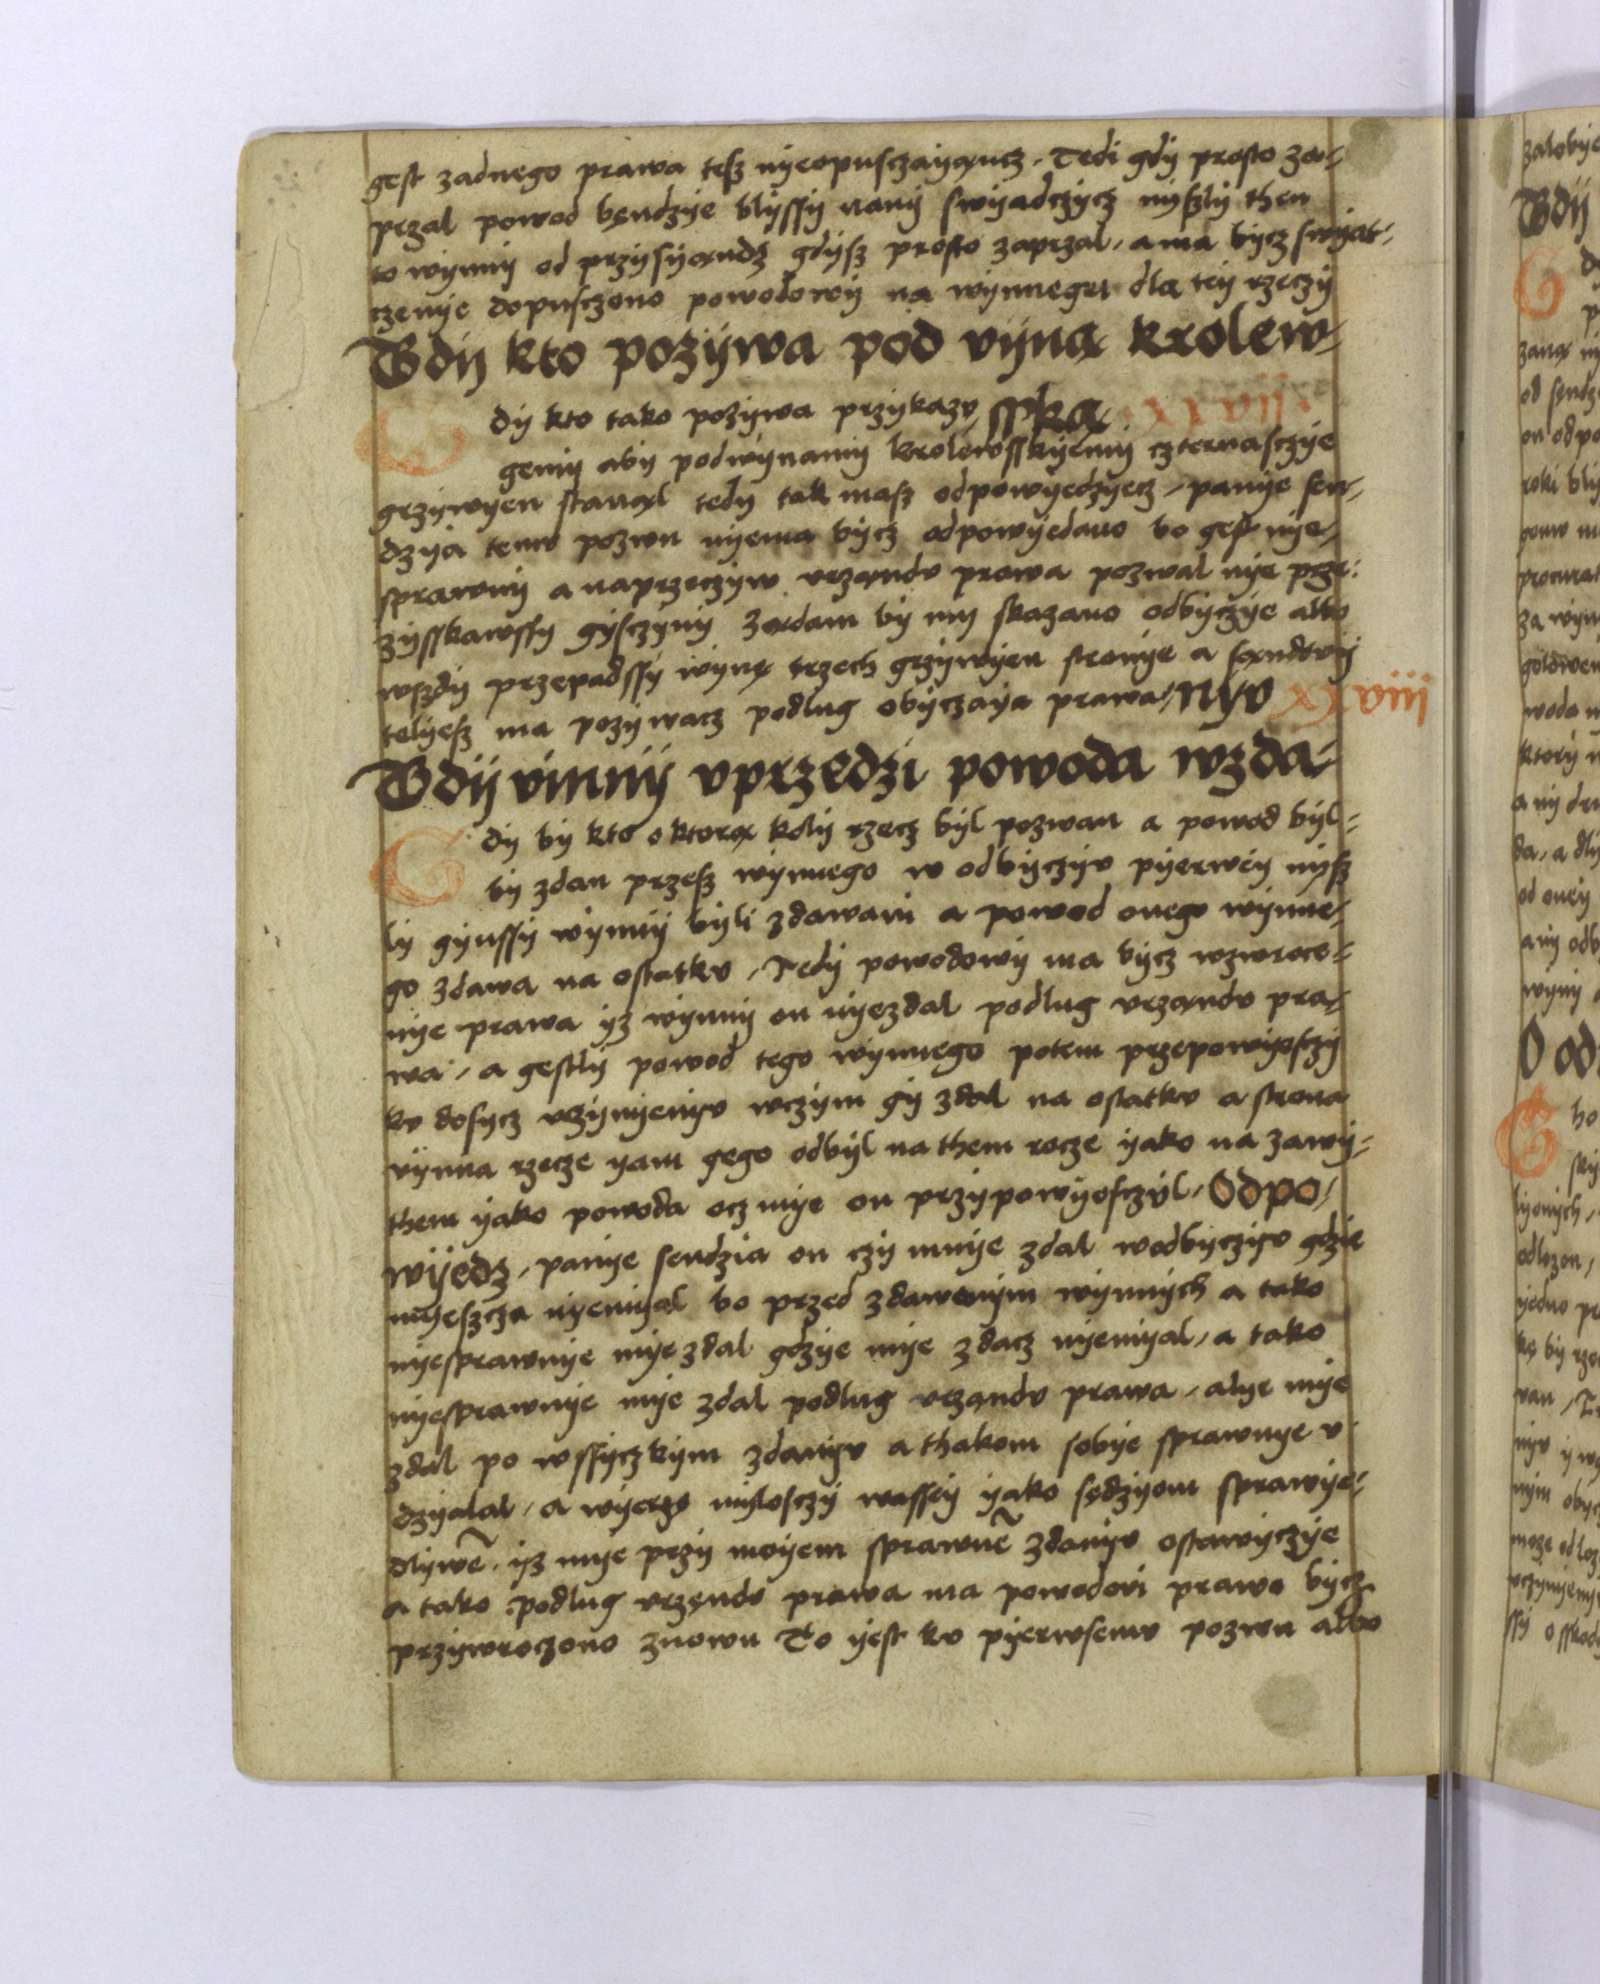 gest zadnego prawa tesz nyeopusczayąncz. Tedi gdy prosto za-
przal powod bęndzye blyssy nany swyadczycz nyszly then
to wynny od przysyąndz gdysz prosto zaprzal, a ma bycz swyat-
czenye dopusczono powodowy na wynnego dla tey rzeczy
Gdy kto pozywa pod vyną krolew-
sską xxvii
Gdy kto tako pozywa przykazv
genym aby podwynamy krolewsskyemy czternasczye
grzywyen stanąl tedy tak masz odpowyedzyecz, panye sen-
dzya temv pozwu nyema bycz odpowyedano bo gest nye-
sprawny a naprzeczyw vrząndv prawa pozwal nye prze:
zysskawssy gysczyny ządam by my skazano odbyczye albo
wszdy przepadssy wyną trzech grzywyen stronye a sąndowy
telyesz ma pozywacz podlug obyczaya prawa
Gdy vinny vprzedzi powoda wzda-
nyv xxviii
Gdy by kto o ktorą koly rzecz byl pozwan a powod byl-
by zdan przesz wynnego w odbyczyv pyerwey nysz
ly gynssy wynny byli zdawani a powod onego wynne-
go zdawa na ostatkv, Tedy powodowy ma bycz wzwroce-
nye prawa yz wynny on nyezdal podlug vrząndv pra-
wa, a gestly powod tego wynnego potem przepowyosczy
kv dosycz vczynyenyv wczym gy zdal na ostatkv a strona
vynna rzecze yam gego odbyl na them rocze yako na zawy-
them yako powoda ocz mye on przypowyosczyl, Odpo-
wyedz, panye sendzia on czy mnye zdal wodbyczyv gdzie
myeszcza nyemyal bo przed zdawanym wynnych a tako
nyesprawnye mye zdal gdzye mye zdacz nyemyal, a tako
nyesprawnye mye zdal podlug vrząndv prawa, alye mye
zdal po wssyczkym zdanyv a thakom sobye sprawnye v
dzyalal, a wyerzę myloscy wassey yako sędzyom sprawye-
dlywē, yz mye przy moyem sprawnē zdanyv ostawyczye
a tako podlug vrzęndv prawa ma powodovi prawo bycz
przywroczono znowu To yest kv pyerwsemv pozwu albo